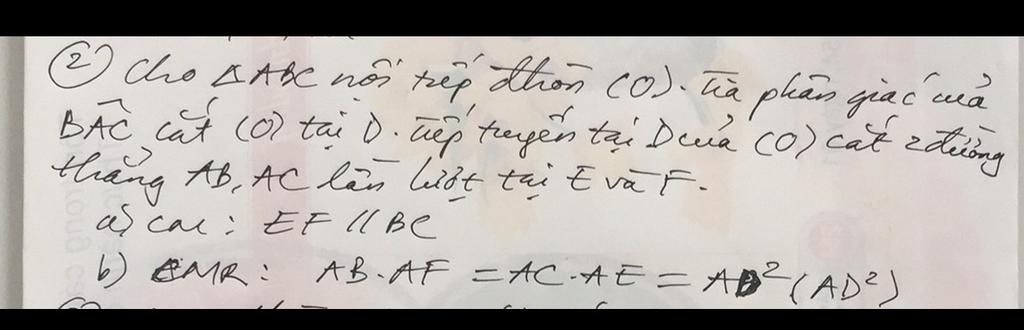 ② Cho ΔABC nội tiếp đtròn (O). Tia phân giác của
BÂC cắt (O) tại D. Tiếp tuyến tại D của (O) cắt 2 đường
thẳng AB, AC lần lượt tại E và F.
a) CM: EF // BC
b) CMR: AB.AF = AC.AE = AD² (AD²)